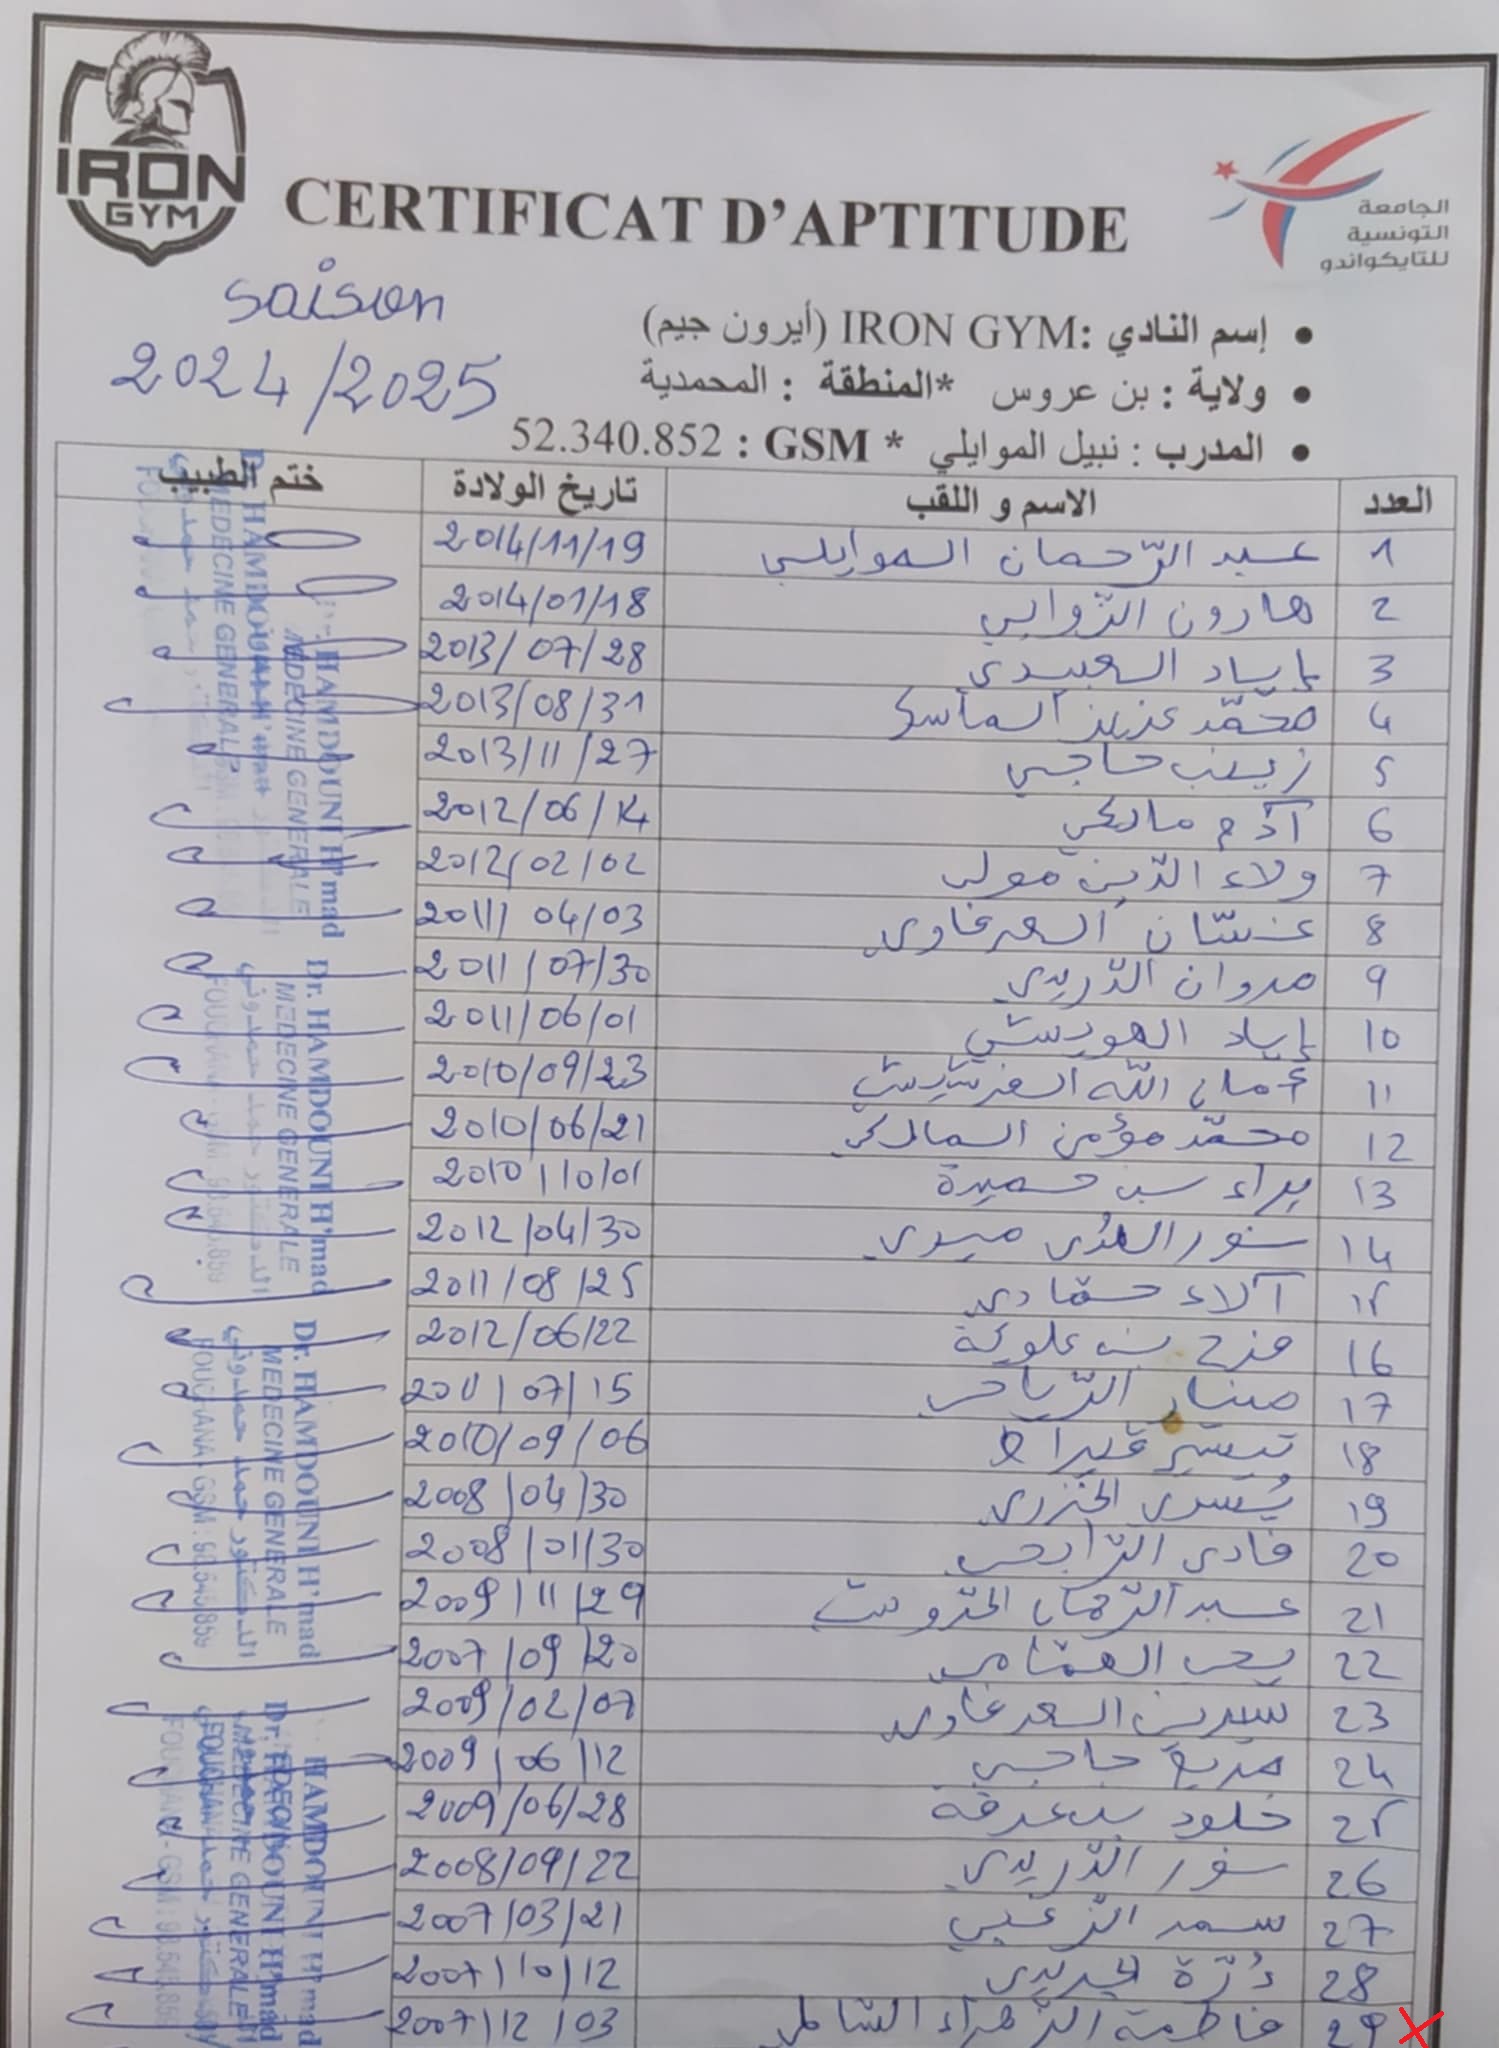 IRON
GYM
CERTIFICAT D'APTITUDE
الجامعة
التونسية
للتايكواندو
saison
2024/2025
• إسم النادي :IRON GYM (أيرون جيم)
• ولاية : بن عروس *المنطقة : المحمدية
• المدرب : نبيل الموايلي * GSM : 52.340.852
العدد الاسم و اللقب تاريخ الولادة ختم الطبيب
1 عبد الرّحمان الموايلي 2014/11/19
2 هارون الزوابي 2014/01/18
3 إياد العبيدي 2013/07/28
4 محمّد عزيز الماسي 2013/08/31
5 زينب حاجي 2013/11/27
6 آدم مالكي 2012/06/14
7 ولاء الدّين مولى 2012/02/02
8 غسّان السعرغاوي 2011/04/03
9 مروان الدّريدي 2011/07/30
10 إياد الهويشي 2011/06/01
11 أمان الله الفرشيشي 2010/09/23
12 محمّد مؤمن المالكي 2010/06/21
13 براء بن حميدة 2010/10/01
14 نور الهدى ميري 2012/04/30
15 آلاء حمّادي 2011/08/25
16 فرح بن علوية 2012/06/22
17 منار الرّياحي 2011/07/15
18 تيسير قيراط 2010/09/06
19 يُسرى الخزري 2008/04/30
20 فادي الرّابحي 2008/01/30
21 عبد الرّحمان 2009/11/29
22 يحي الهمّامي 2007/09/20
23 سيرين السعرغاوي 2009/02/07
24 مريم حاجي 2009/06/12
25 خلود بن عرفة 2009/06/28
26 نور الدّريدي 2008/09/22
27 سمر الزّغبي 2007/03/21
28 دُرّة الجريدي 2007/10/12
29 فاطمة الزّهراء الشاملي 2007/12/03
Dr. HAMDOUNI H'mad
MEDECINE GENERALE
Dr. HAMDOUNI H'mad
MEDECINE GENERALE
الدكتور حمد حمدوني
Dr. HAMDOUNI H'mad
MEDECINE GENERALE
الدكتور حمد حمدوني
FOUCHANA - GSM :
Dr. HAMDOUNI H'mad
MEDECINE GENERALE